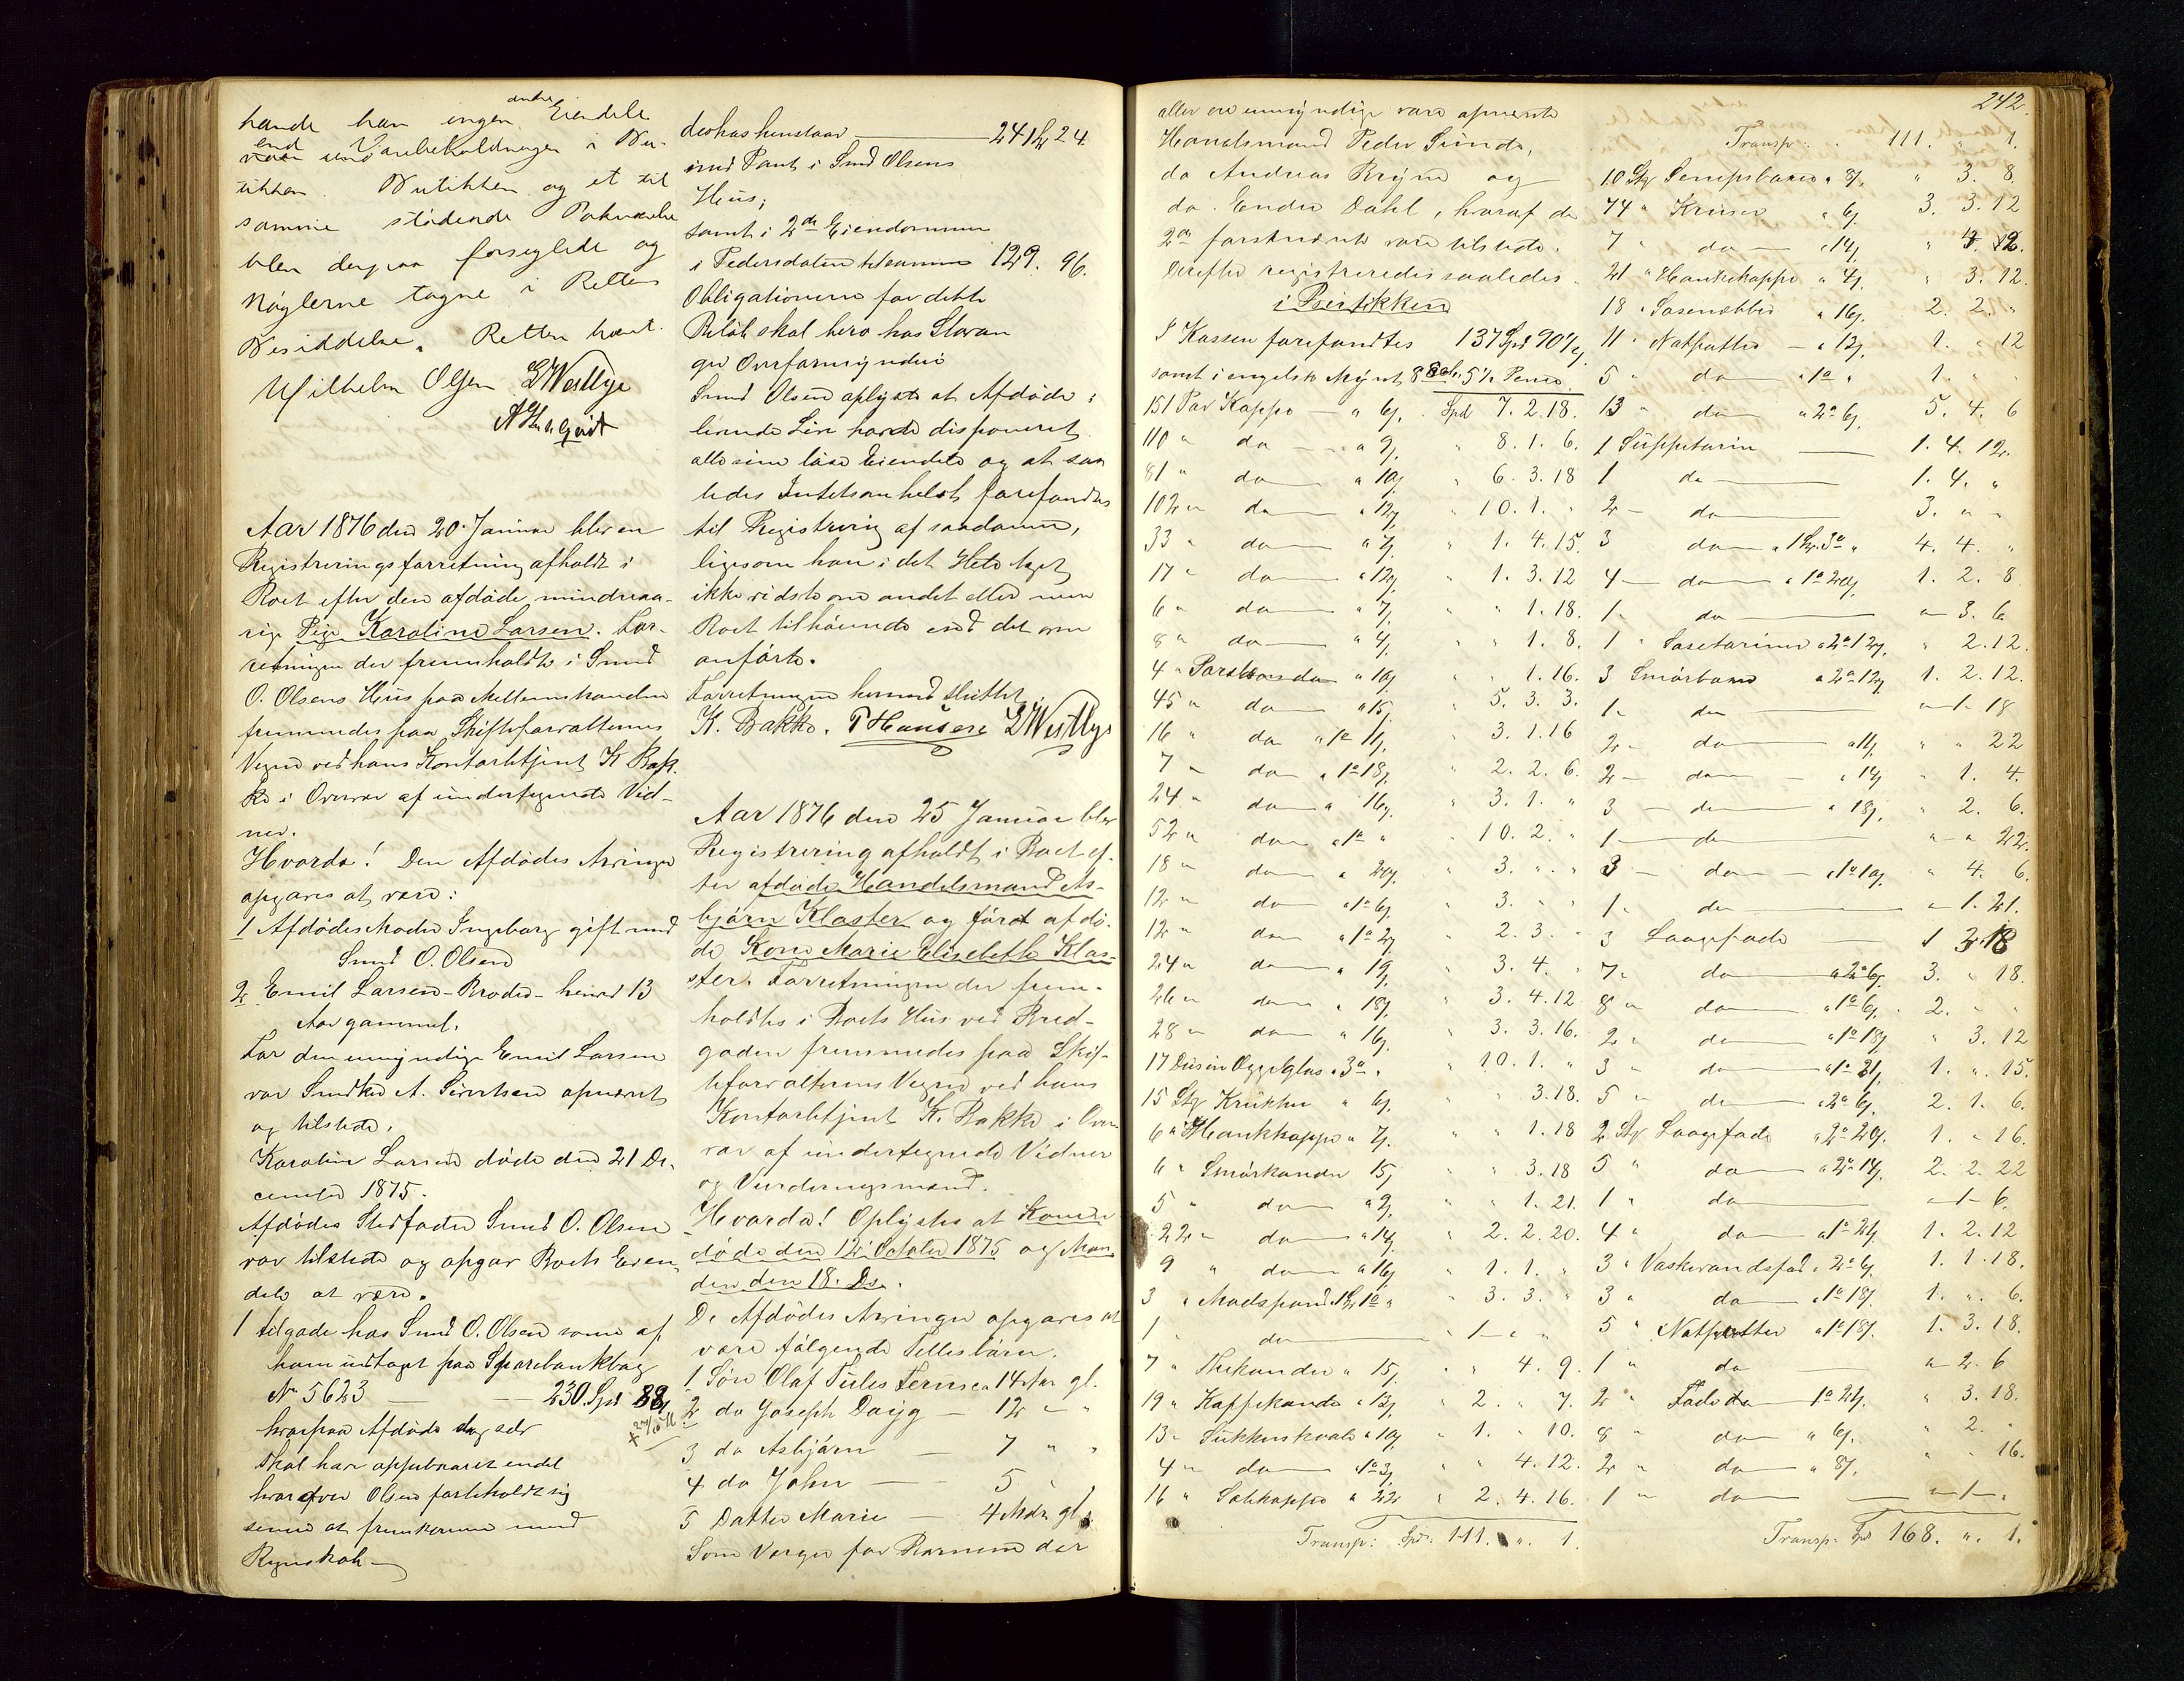 havde han ingen andre Eiendele
end Varebeholdningen i Bu-
tikken. Butikken og et til
samme stødende Pakværelse
blev derpaa forseglede og
Nøglerne tagne i Rettens
Besiddelse. Retten hævet.
Wilhelm Olsen L Westlye
Aar 1876 den 20. Januar blev en
Registreringsforretning afholdt i
Boet efter den afdøde mindreaa-
rige Pige Karoline Larsen. For-
retningen der fremholdtes i Smed
O. Olsens Hus paa
fremmedes paa Skifteforvalterens
Vegne ved hans Kontorbetjent K Bak-
ke i Overvær af undertegnede Vid-
ner.
Hvorda! Den Afdødes Arvinger
opgaves at være:
1 Afdødes Moder Ingeborg gift med
Smed O. Olsen
2 Emil Larsen - Broder - henved 13
Aar gammel.
For den umyndige Emil Larsen
var Smed A. Sivertsen opnævnt
og tilstede.
Karoline Larsen døde den 21 De-
cember 1875.
Afdødes Stedfader Smed O. Olsen
var tilstede og opgav Boets Eien-
dele at være.
1 tilgode hos Smed O. Olsen som af
ham udtaget paa Sparebankbog
No 5623 — 230 Spd 88
hvorpaa Afdøde dog selv
skal have oppebaaret endel
hvorfor Olsen forbeholdt sig
senere at fremkomme med
Regnskab
derhos henstaar — 241 24
mod Pant i Smed Olsens
Hus;
samt i 2de Eiendomme
i Pedersdalen tilsammen 129. 96.
Obligationerne for dette
Beløb skal bero hos Stavan-
ger Overformynderi
Smed Olsen oplyste at Afdøde i
levende Live havde disponeret
alle sine løse Eiendele og at saa-
ledes Intetsomhelst forefandtes
til Registrering af saadanne,
ligesom han i det Hele taget
ikke vidste om andet eller mere
Boet tilhørende end det om-
anførte.
Forretningen hermed sluttet
K. Bakke. P Hansen L Westlye
Aar 1876 den 25 Januar blev
Registrering afholdt i Boet ef-
ter afdøde Handelsmand As-
bjørn Kloster og først afdø-
de Kone Marie Elisebeth Klo-
ster. Forretningen der frem-
holdtes i Boets Hus ved Bred-
gaden fremmedes paa Skif-
teforvalterens Vegne ved hans
Kontorbetjent K. Bakke i Over-
vær af undertegnede Vidner
og Vurderingsmænd.
Hvorda! Oplystes at Konen
døde den 12 October 1875 og Man-
den den 18. Ds.
De Afdødes Arvinger opgaves at
være følgende Fellesbørn.
1 Søn Olaf Julius 14 Aar gl.
2 do Joseph — 12 " "
3 do Asbjørn — 7 " "
4 do John — 5 "
5 Datter Marie — 4 Mdr gl.
Som Værger for Børnene der
242
alle ere umyndige vare opnævnte
Handelsmand Peder Sunde,
do Andreas Bryne og
do. Endre Dahl, hvoraf de
2de førstnævnte vare tilstede.
Derefter registreredes saaledes.
i Butikken
I Kassen forefandtes 137 Spd 90
samt i engelsk Mynt 8 Sh. 5½ Pence.
151 Par Kopper a 6 Spd 7. 2. 18.
110 " do a 9 " 8. 1. 6.
81 " do a 10 " 6. 3. 18
102 " do a 12 " 10. 1. "
33 " do a 7 " 1. 4. 15.
17 " do a 12 " 1. 3. 12
6 " do a 7 " " 1. 18.
8 " do a 4 " " 1. 8.
4 " do a 10 " " 1. 16.
45 " do a 15 5. 3. 3.
16 " do a 1o 11 3. 1. 16
7 " do a 1o 18 " 2. 2. 6.
24 " do a 16 " 3. 1. "
52 " do a 1o " " 10. 2. "
18 " do a 20 " 3. " "
12 " do a 1o 6 " 3. " "
12 " do a 1o 2 " 2. 3. "
24 " do a 19 " 3. 4. "
26 " do a 18 " 3. 4. 12.
28 " do a 16 " 3. 3. 16.
17 Dusin Æggeglas a 3o " " 10. 1. "
15 Stk Krukker a 6 " " 3. 18.
6 " Hankkopper a 7 " " 1. 18
6 " Smørkander 15 " " 3. 18
5 " do a 9 " " 1. 21.
22 " do a 14 " 2. 2. 20.
9 " do a 16 " 1. 1. "
3 " Madspand 1 1o " " 3. 3. "
1 " do — " 1 — " "
7 " Thekander a 15 " " 4. 9.
19 " Kaffekander a 13 " 2. " 7.
13 " Sukkerskaale a 10 " 1. " 10.
4 " do a 1o 3 " " 4. 12.
16 " a 22 " 2. 4. 16.
Transp: Spd: 111. " 1.
Transp: 111. " 1.
10 Stk Senepskander a 8 " 3. 8.
74 " Kruser a 6 3. 3. 12
7 " do a 14
21 " Hankekopper a 4 " 3. 12.
18 " a 16 2. 2. "
11 " Natpotter a 12 1. " 12
5 " do a 1o " 1. " "
13 " do a 2o 6 5. 4. 6
1 Suppeterin — 1. 4. 12.
1 do — 1. 4. "
2 — do — 3. " "
3 do a 1 3o " 4. 4. "
4 — do a 1o 20 1. 2. 8
1 " do — " 3. 6
1 " Soseteriner a 2o 12 " 2. 12.
3 a 2o 12 1. 2. 12.
1 " do — " 1 18
2 " do a 11 " " 22
2 — do a 14 " 1. 4.
3 — do a 18 " 2. 6.
1 — do — " " 22.
3 — do a 1o 10 " 4. 6.
1 " do — " 1. 21.
3 Laagefade
7 " do a 2o 6 3. " 18.
8 " do a 1o 6 2. " "
2 " do a 1o 18 " 3. 12
3 " do a 1o 21 1. " 15.
5 " do a 2o 6 2. 1. 6.
2 Stk Laagefade a 2o 20 1. " 16.
5 " do a 2o 14 2. 2. 22
1 " do — " 1 6.
4 " do a 1o 21 1. 2. 12
3 " Vaskevandsfad a 2o 6 1. 1. 18.
3 " do a 1o 18 1. " 6.
5 " Natpotter a 1o 18 1. 3. 18.
1 " do — " 2. 6
2 " Fade do 1o 21 " 3. 18.
8 " do a 6 " 2. "
2 " do a 8 " " 16.
1 " do — " 1 "
Transp: Spd 168. " 1.